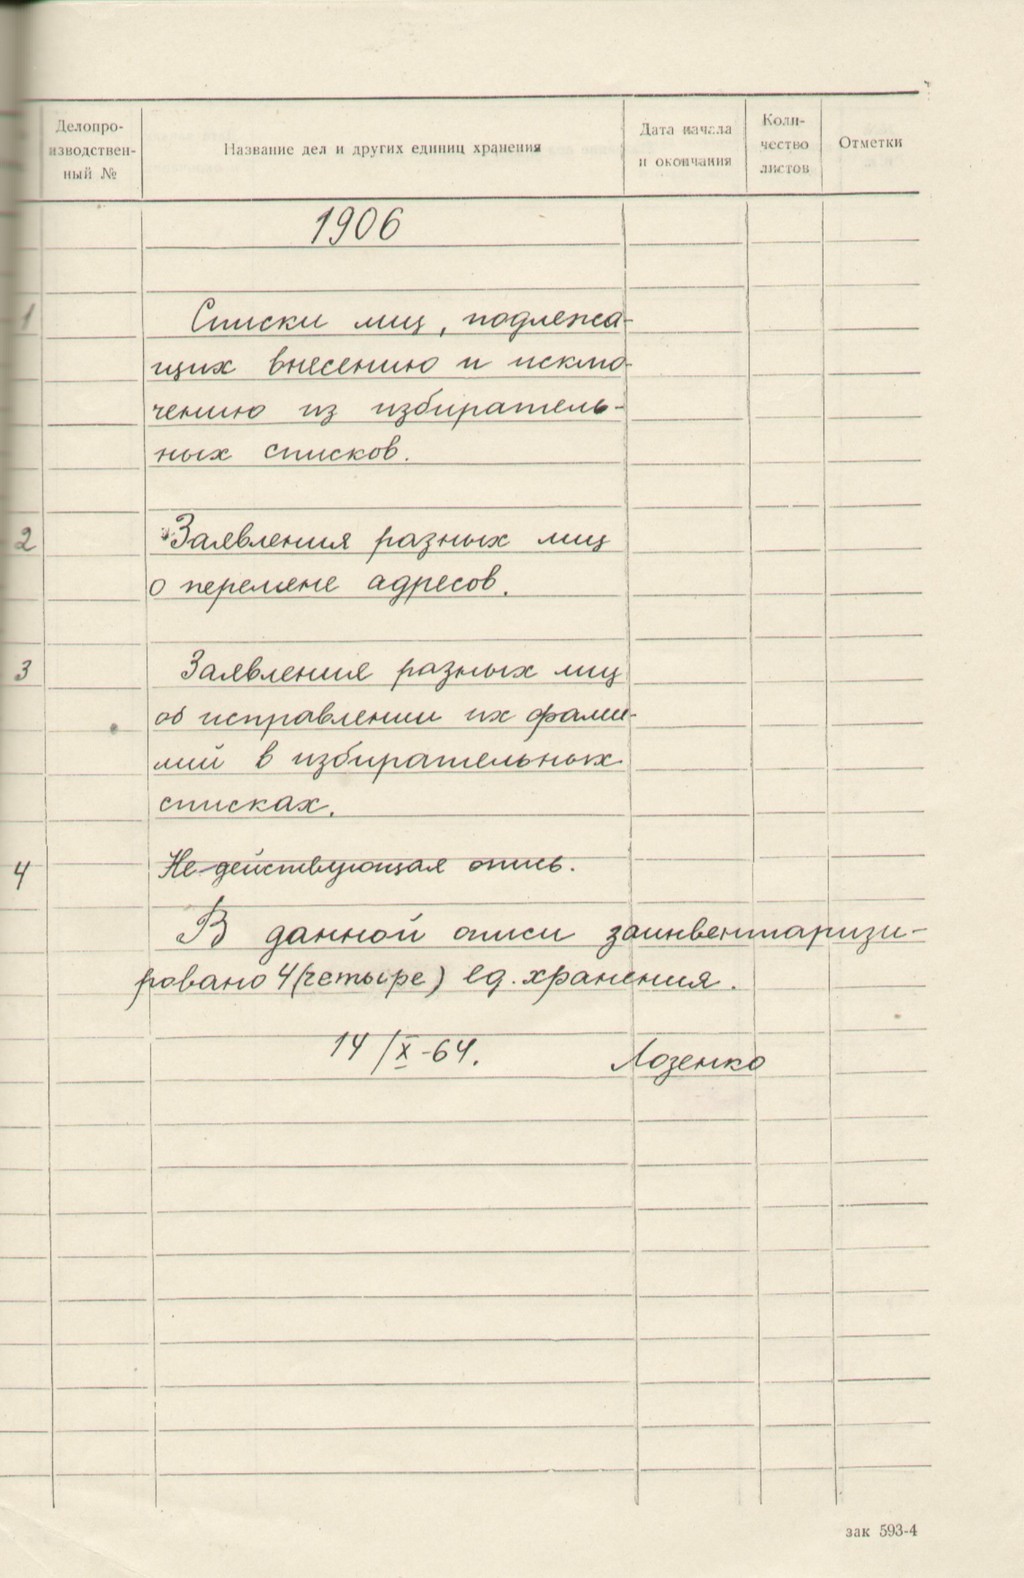 Делопро-
изводствен-
ный №
Название дел и других единиц хранения
Дата начала
и окончания
Коли-
чество
листов
Отметки
1906
1 Списки лиц, подлежа-
щих внесению и исклю-
чению из избиратель-
ных списков.
2 Заявления разных лиц
о перемене адресов.
3 Заявления разных лиц
об исправлении их фами-
лий в избирательных
списках.
4 Не действующая опись.
В данной описи заинвентаризи-
ровано 4 (четыре) ед. хранения.
14/X-64. Лозенко
зак 593-4